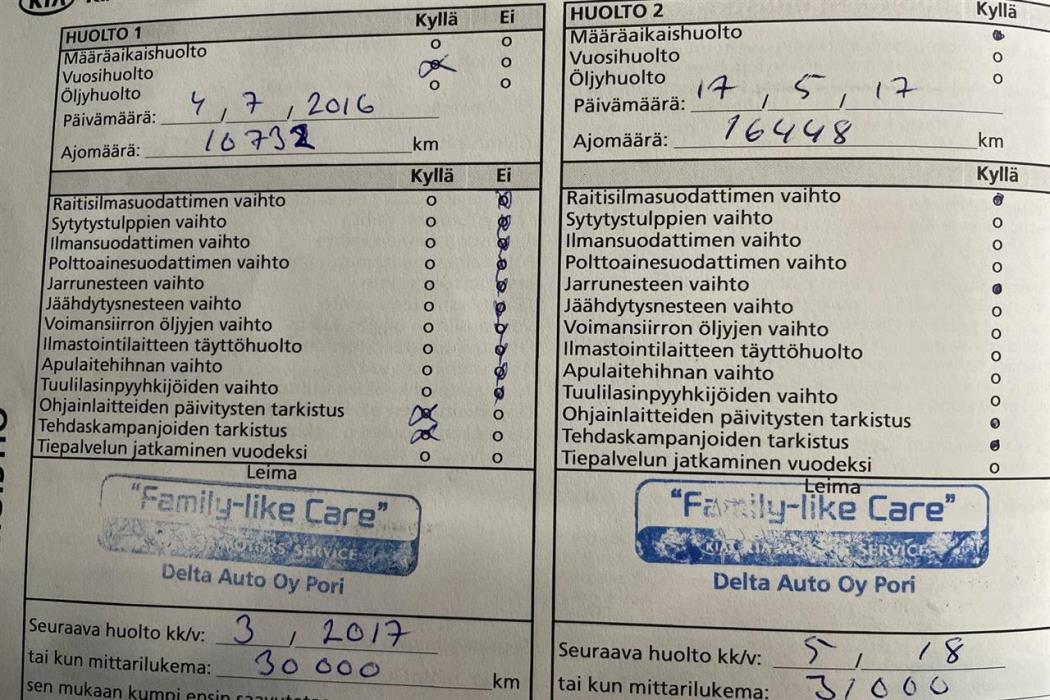 KIA
HUOLTO 1 Kyllä Ei
Määräaikaishuolto
Vuosihuolto
Öljyhuolto
Päivämäärä: 4 / 7 / 2016
Ajomäärä: 10732 km
Kyllä Ei
Raitisilmasuodattimen vaihto
Sytytystulppien vaihto
Ilmansuodattimen vaihto
Polttoainesuodattimen vaihto
Jarrunesteen vaihto
Jäähdytysnesteen vaihto
Voimansiirron öljyjen vaihto
Ilmastointilaitteen täyttöhuolto
Apulaitehihnan vaihto
Tuulilasinpyyhkijöiden vaihto
Ohjainlaitteiden päivitysten tarkistus
Tehdaskampanjoiden tarkistus
Tiepalvelun jatkaminen vuodeksi
Leima
"Family-like Care"
MOTORS SERVICE
Delta Auto Oy Pori
Seuraava huolto kk/v: 3 / 2017
tai kun mittarilukema: 30 000 km
sen mukaan kumpi ensin
HUOLTO 2 Kyllä
Määräaikaishuolto
Vuosihuolto
Öljyhuolto
Päivämäärä: 17 / 5 / 17
Ajomäärä: 16448 km
Kyllä
Raitisilmasuodattimen vaihto
Sytytystulppien vaihto
Ilmansuodattimen vaihto
Polttoainesuodattimen vaihto
Jarrunesteen vaihto
Jäähdytysnesteen vaihto
Voimansiirron öljyjen vaihto
Ilmastointilaitteen täyttöhuolto
Apulaitehihnan vaihto
Tuulilasinpyyhkijöiden vaihto
Ohjainlaitteiden päivitysten tarkistus
Tehdaskampanjoiden tarkistus
Tiepalvelun jatkaminen vuodeksi
Leima
"Family-like Care"
SERVICE
Delta Auto Oy Pori
Seuraava huolto kk/v: 5 / 18
tai kun mittarilukema: 31000